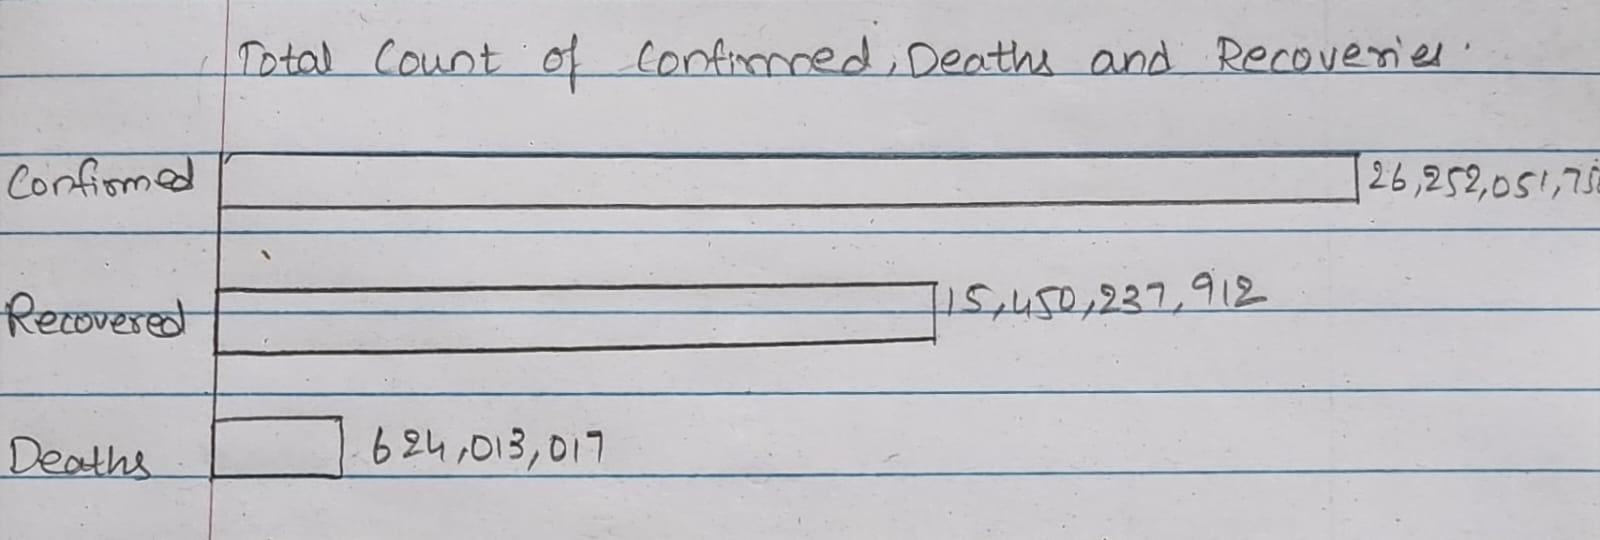 Total Count of Confirmed, Deaths and Recoveries.
Confirmed 26,252,051,75
Recovered 15,450,237,912
Deaths 624,013,017